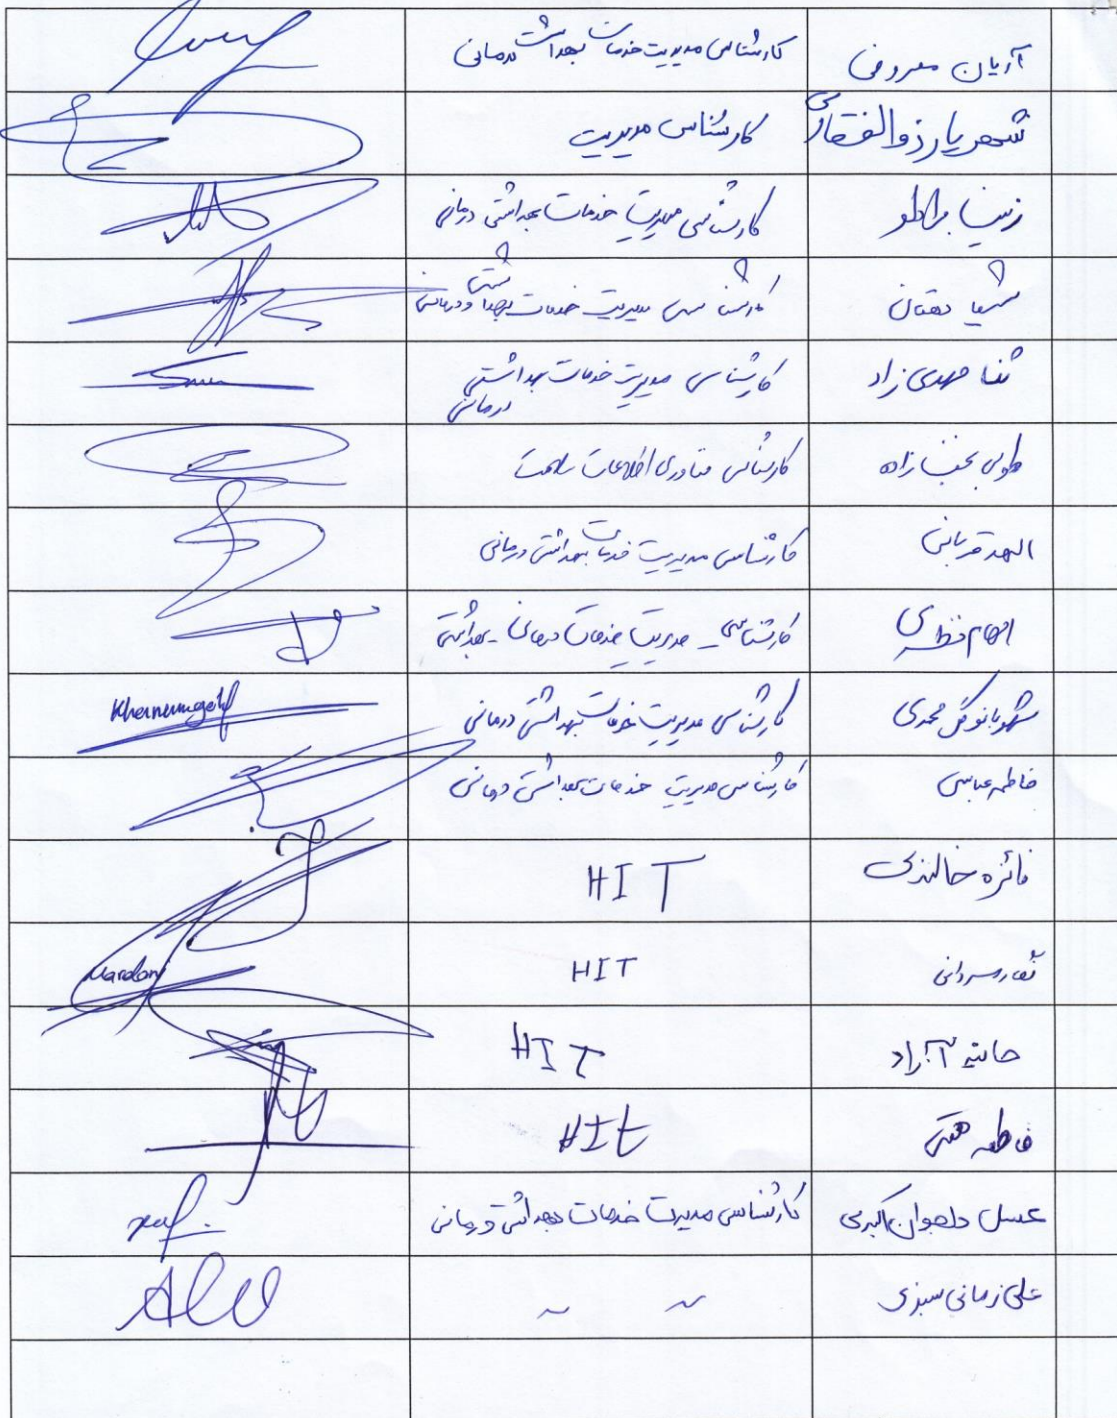 آریان معروفی کارشناسی مدیریت خدمات بهداشت درمانی
شهریار ذوالفقاری کارشناسی مدیریت
کارشناسی مدیریت خدمات بهداشتی درمانی
دهقان کارشناسی مدیریت خدمات بهداشتی و درمانی
ثنا مهدی زاد کارشناسی مدیریت خدمات بهداشتی درمانی
طوبی کارشناسی فناوری اطلاعات سلامت
الهه قربانی کارشناسی مدیریت خدمات بهداشتی درمانی
الهام نظری کارشناسی مدیریت خدمات درمانی - بهداشتی
شهربانو گل محمدی کارشناسی مدیریت خدمات بهداشتی درمانی
فاطمه عباسی کارشناسی مدیریت خدمات بهداشتی درمانی
فائزه HIT
HIT Mardani
آزاد HIT
فاطمه همتی HIT
عسل کارشناسی مدیریت خدمات بهداشتی درمانی
علی زمانی سبزی ~ ~